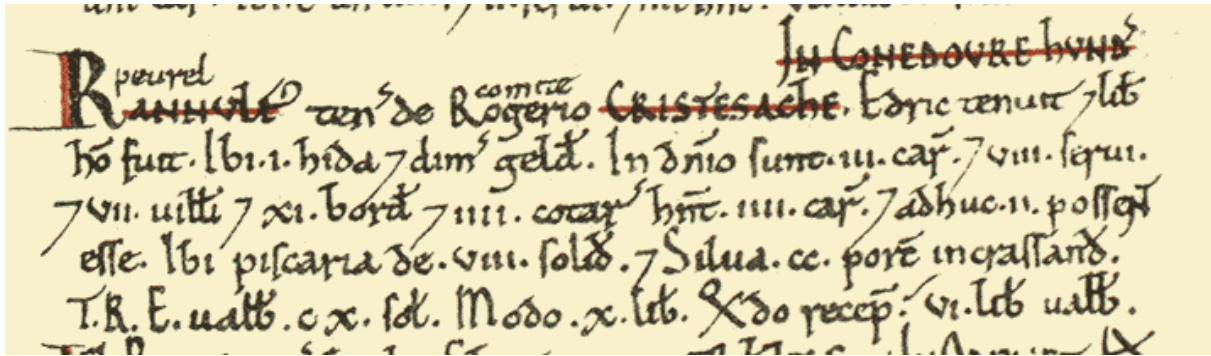 IN CONEDOVRE HVND'
peurel comite
RANNVLF' ten' de Rogerio CRISTESACHE. Edric tenuit ⁊ lib̄
hō fuit. Ibi .i. hida ⁊ dim' geld̄. In dn̄io sunt .iii. car̄. ⁊ viii. serui.
⁊ vii. uilli ⁊ xi. bord̄ ⁊ iiii. cotar' hn̄t .iiii. car̄. ⁊ adhuc .ii. possen̄
esse. Ibi piscaria de .viii. solid̄. ⁊ Silua .cc. porc̄ incrassand̄.
T.R.E. ualeb̄ .cx. sol̄. Modo .x. lib̄. Q̄do recep̄. vi. lib̄ ualb̄.